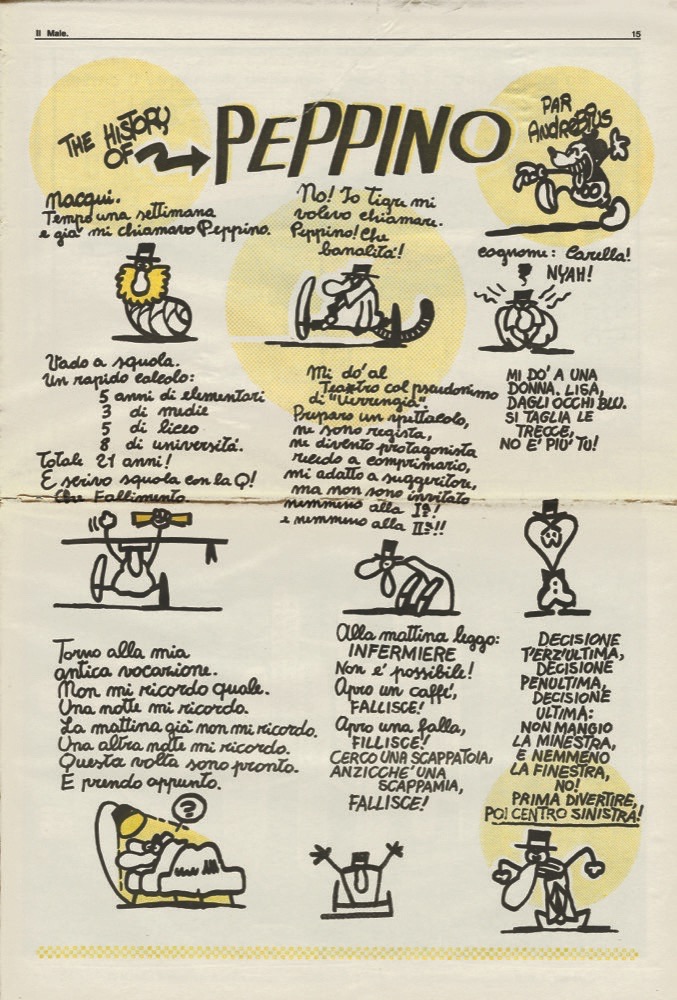 Il Male.
15
THE HISTORY
OF
PEPPINO
PAR
ANDROSIUS
nacqui.
Tempo una settimana
e già mi chiamavo Peppino.
No! Io Tigre mi
volevo chiamare.
Peppino! Che
banalità!
cognome: Carella!
NYAH!
Vado a squola.
Un rapido calcolo:
5 anni di elementari
3 di medie
5 di liceo
8 di università.
Totale 21 anni!
E scrivo squola con la Q!
Che Fallimento.
Mi dó al
Teatro col pseudonimo
di "Verrengia".
Preparo un spettacolo,
ne sono regista,
ne divento protagonista
recedo a comprimario,
mi adatto a suggeritore,
ma non sono invitato
nemmeno alla Iª!
e nemmeno alla IIª!!
MI DO' A UNA
DONNA. LISA,
DAGLI OCCHI BLU.
SI TAGLIA LE
TRECCE,
NO E' PIU' TU!
Torno alla mia
antica vocazione.
Non mi ricordo quale.
Una notte mi ricordo.
La mattina già non mi ricordo.
Una altra notte mi ricordo.
Questa volta sono pronto.
E prendo appunto.
?
Alla mattina leggo:
INFERMIERE
Non e' possibile!
Apro un caffé,
FALLISCE!
Apro una falla,
FILLISCE!
CERCO UNA SCAPPATOIA,
ANZICCHE' UNA
SCAPPAMIA,
FALLISCE!
DECISIONE
T'ERZ'ULTIMA,
DECISIONE
PENULTIMA,
DECISIONE
ULTIMA:
NON MANGIO
LA MINESTRA,
E NEMMENO
LA FINESTRA,
NO!
PRIMA DIVERTIRE,
POI CENTRO SINISTRA!